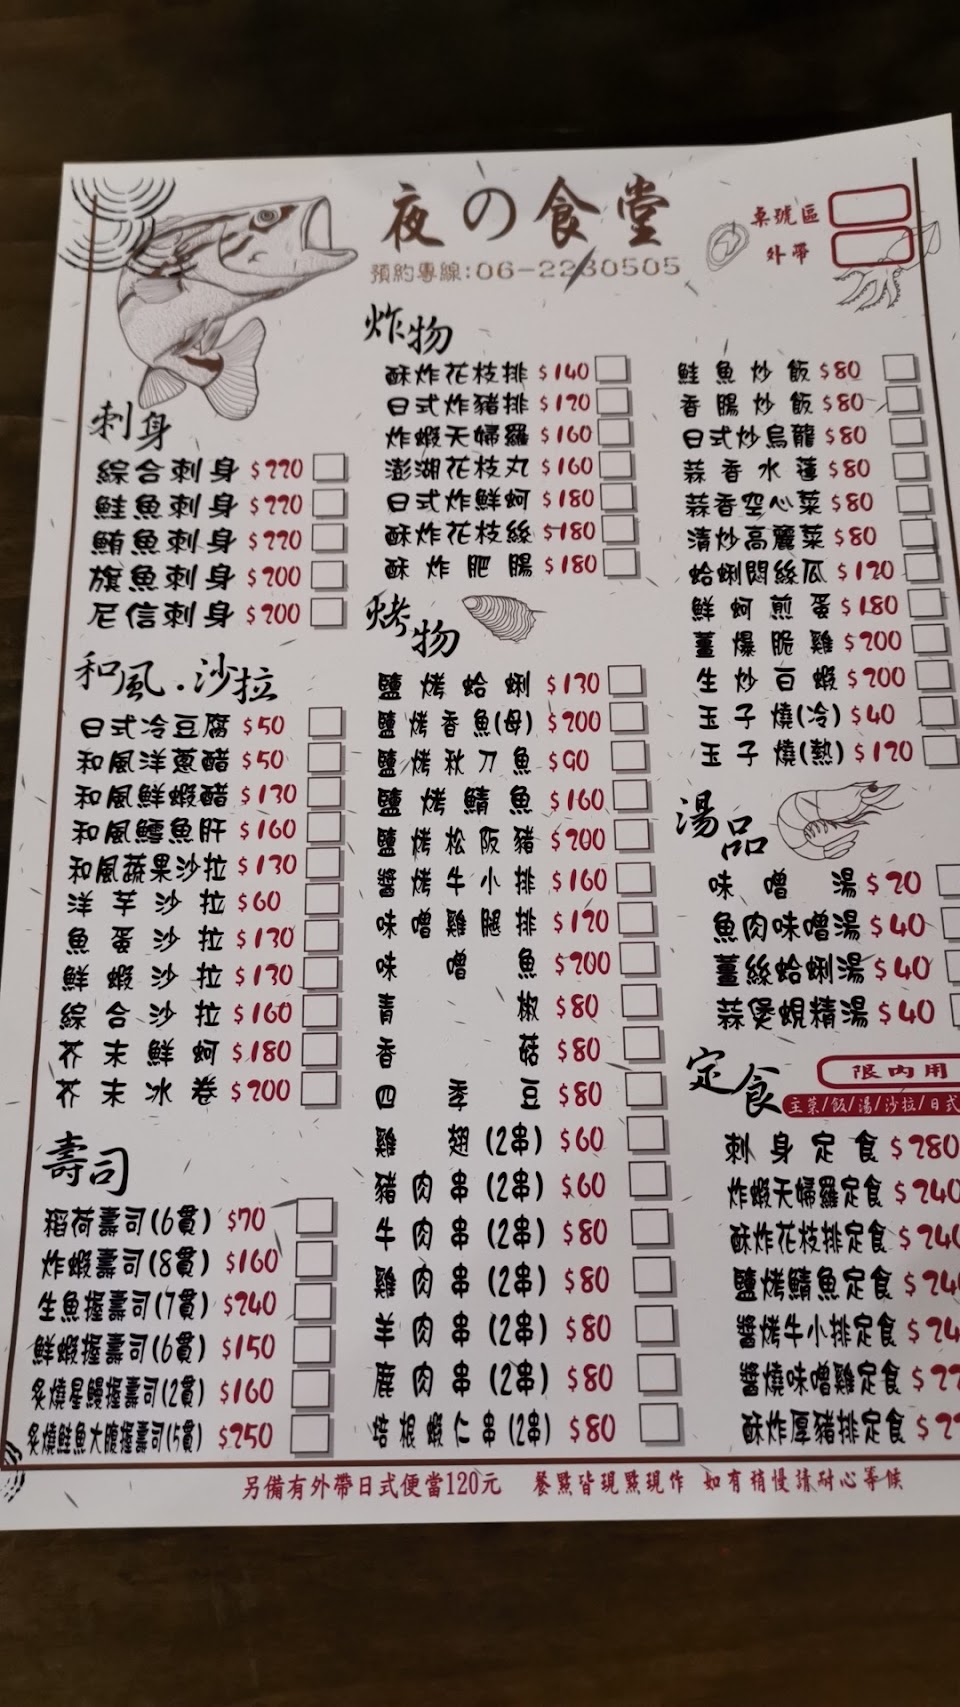 夜の食堂
預約專線:06-2230505
桌號區
外帶
刺身
綜合刺身 $220
鮭魚刺身 $220
鮪魚刺身 $220
旗魚刺身 $200
尼信刺身 $200
和風.沙拉
日式冷豆腐 $50
和風洋蔥醋 $50
和風鮮蝦醋 $130
和風鱈魚肝 $160
和風蔬果沙拉 $130
洋芋沙拉 $60
魚蛋沙拉 $130
鮮蝦沙拉 $130
綜合沙拉 $160
芥末鮮蚵 $180
芥末冰卷 $200
壽司
稻荷壽司(6貫) $70
炸蝦壽司(8貫) $160
生魚握壽司(7貫) $240
鮮蝦握壽司(6貫) $150
炙燒星鰻握壽司(2貫) $160
炙燒鮭魚大腹握壽司(5貫) $250
炸物
酥炸花枝排 $140
日式炸豬排 $120
炸蝦天婦羅 $160
澎湖花枝丸 $160
日式炸鮮蚵 $180
酥炸花枝絲 $180
酥炸肥腸 $180
烤物
鹽烤蛤蜊 $130
鹽烤香魚(母) $200
鹽烤秋刀魚 $90
鹽烤鯖魚 $160
鹽烤松阪豬 $200
醬烤牛小排 $160
味噌雞腿排 $120
味噌魚 $200
青椒 $80
香菇 $80
四季豆 $80
雞翅(2串) $60
豬肉串(2串) $60
牛肉串(2串) $80
雞肉串(2串) $80
羊肉串(2串) $80
鹿肉串(2串) $80
培根蝦仁串(2串) $80
鮭魚炒飯 $80
香腸炒飯 $80
日式炒烏龍 $80
蒜香水蓮 $80
蒜香空心菜 $80
清炒高麗菜 $80
蛤蜊悶絲瓜 $120
鮮蚵煎蛋 $180
薑爆脆雞 $200
生炒白蝦 $200
玉子燒(冷) $40
玉子燒(熱) $120
湯品
味噌湯 $20
魚肉味噌湯 $40
薑絲蛤蜊湯 $40
蒜煲蜆精湯 $40
定食
限內用
主菜/飯/湯/沙拉/日式
刺身定食 $280
炸蝦天婦羅定食 $240
酥炸花枝排定食 $240
鹽烤鯖魚定食 $24
醬烤牛小排定食 $24
醬燒味噌雞定食 $22
酥炸厚豬排定食 $2
另備有外帶日式便當120元 餐點皆現點現作 如有稍慢請耐心等候